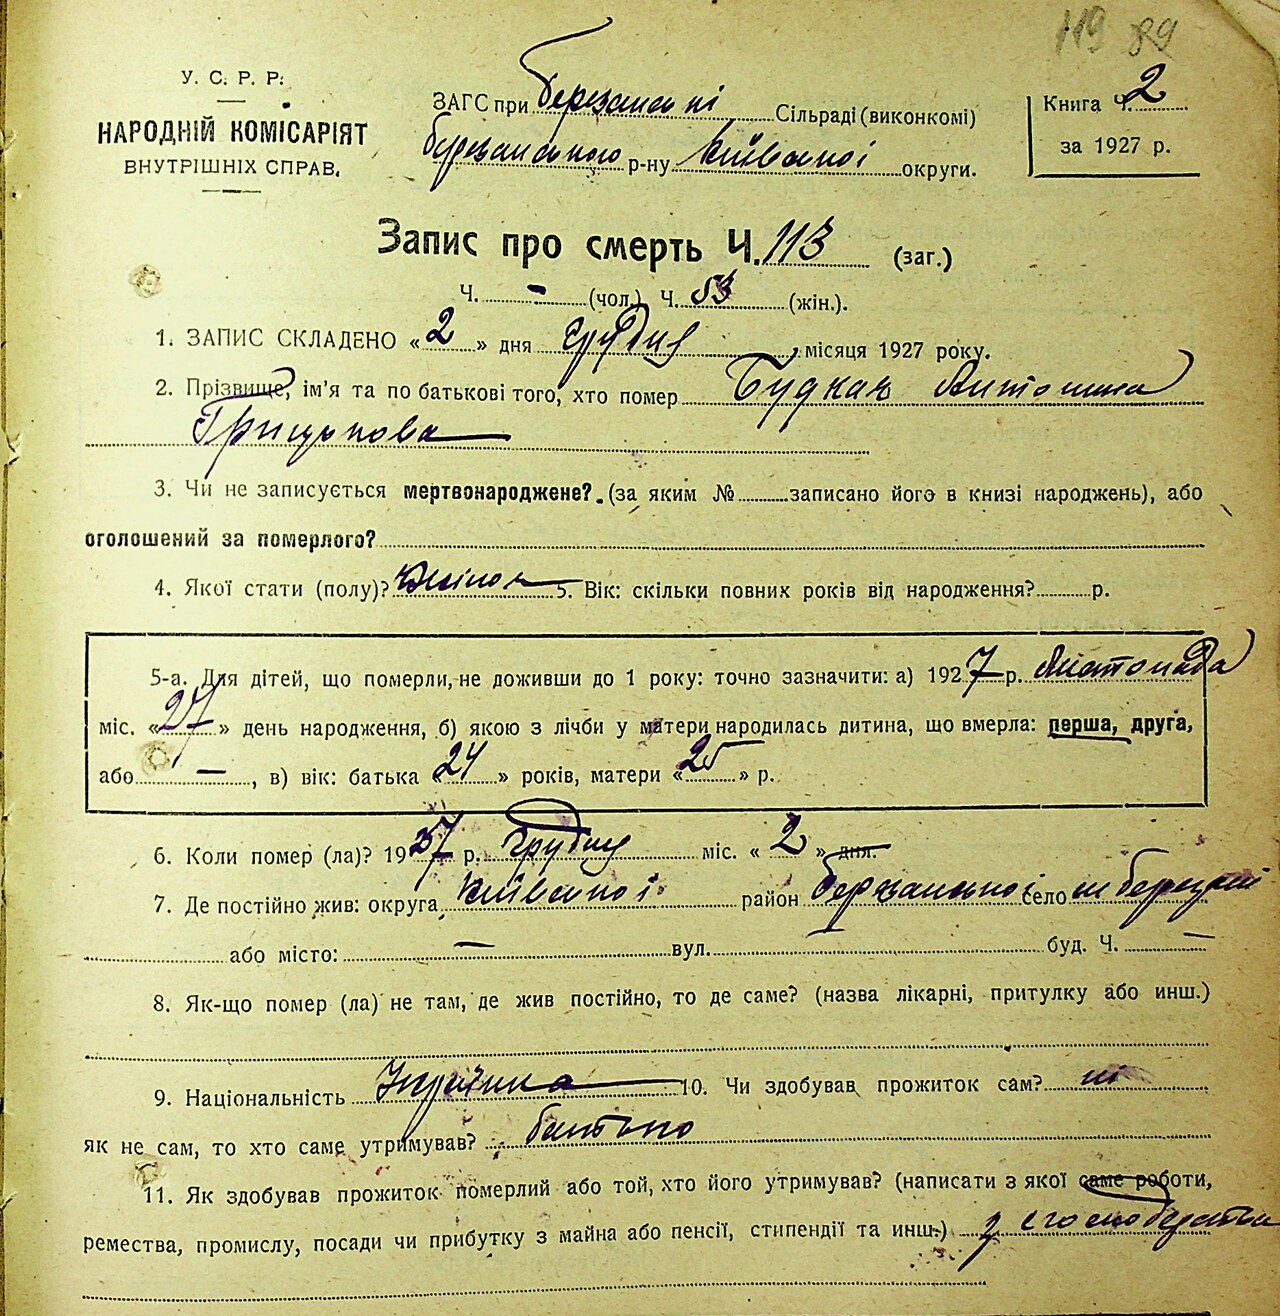 119 89
У. С. Р. Р.
НАРОДНІЙ КОМІСАРІЯТ
ВНУТРІШНІХ СПРАВ.
ЗАГС при Березанські Сільраді (виконкомі)
березанського р-ну Київської округи.
Книга Ч. 2
за 1927 р.
Запис про смерть Ч. 113 (заг.)
Ч. - (чол.) Ч. 53 (жін.).
1. ЗАПИС СКЛАДЕНО «2» дня Грудня місяця 1927 року.
2. Прізвище, ім'я та по батькові того, хто помер Будкак Антонина
Грицькова
3. Чи не записується мертвонароджене? (за яким № записано його в книзі народжень), або
оголошений за померлого?
4. Якої стати (полу)? Жіноч 5. Вік: скільки повних років від народження? р.
5-а. Для дітей, що померли, не доживши до 1 року: точно зазначити: а) 1927 р. Листопада
міс. «27» день народження, б) якою з лічби у матери народилась дитина, що вмерла: перша, друга,
або —, в) вік: батька «24» років, матери «25» р.
6. Коли помер (ла)? 1927 р. Грудня міс. «2» дня.
7. Де постійно жив: округа Київської район Березанської село
або місто: — вул. буд. Ч. —
8. Як-що помер (ла) не там, де жив постійно, то де саме? (назва лікарні, притулку або инш.)
9. Національність Українка 10. Чи здобував прожиток сам? ні
як не сам, то хто саме утримував? батько
11. Як здобував прожиток померлий або той, хто його утримував? (написати з якої саме роботи,
ремества, промислу, посади чи прибутку з майна або пенсії, стипендії та инш.) з с господарства